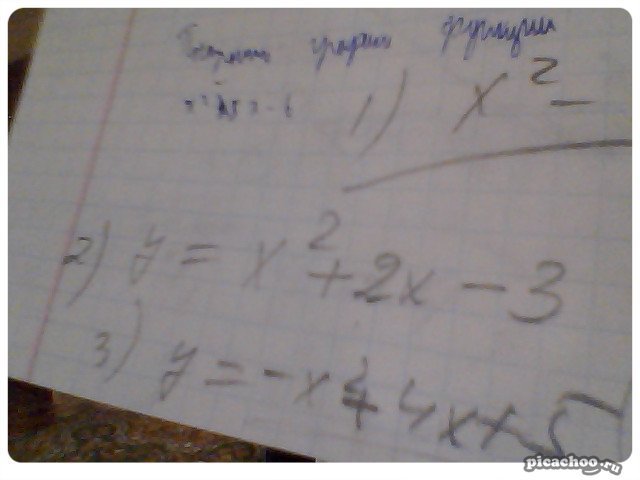 Построить график функции
1) x² -
2) y = x² + 2x - 3
3) y = -x² + 4x + 5
picachoo.ru